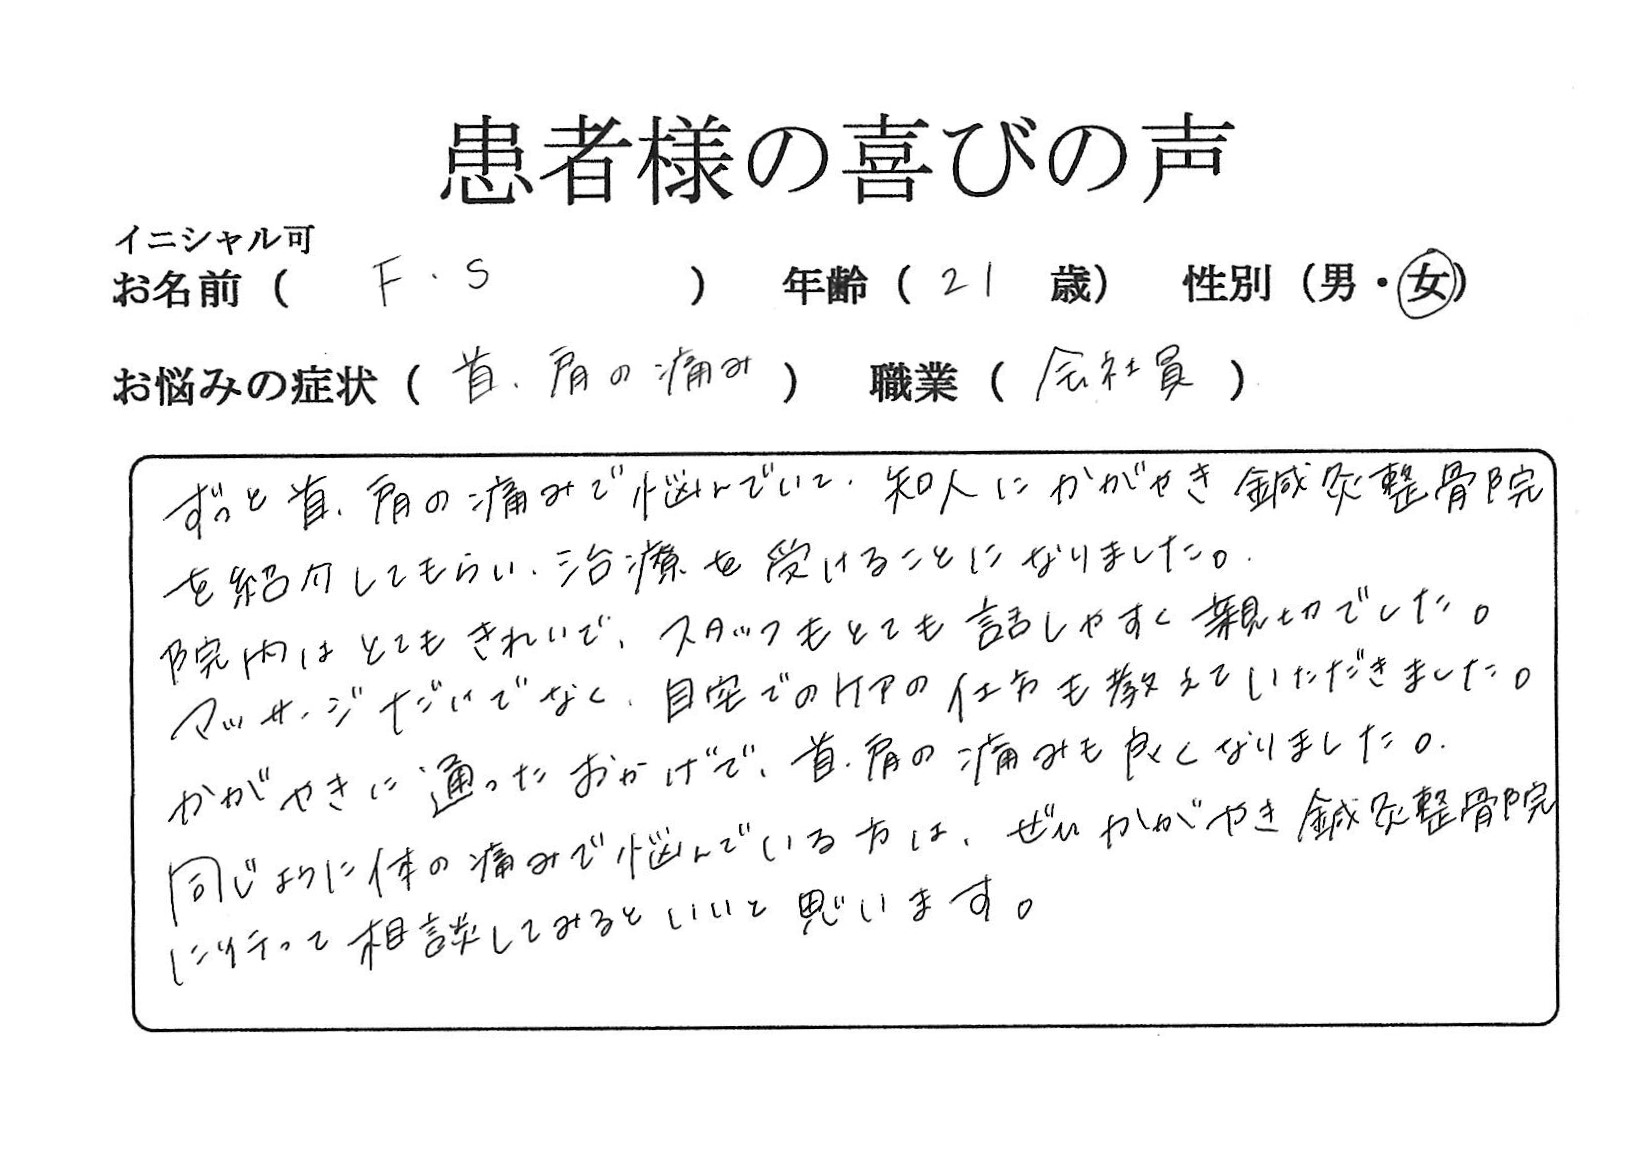 患者様の喜びの声
イニシャル可
お名前（ F.S ） 年齢（ 21 歳） 性別（男・女）
お悩みの症状（ 首、肩の痛み ） 職業（ 会社員 ）
ずっと首、肩の痛みで悩んでいて、知人にかがやき鍼灸整骨院
を紹介してもらい、治療を受けることになりました。
院内はとてもきれいで、スタッフもとても話しやすく親切でした。
マッサージだけでなく、自宅でのケアの仕方も教えていただきました。
かがやきに通ったおかげで、首、肩の痛みも良くなりました。
同じように体の痛みで悩んでいる方は、ぜひかがやき鍼灸整骨院
に行って相談してみるといいと思います。